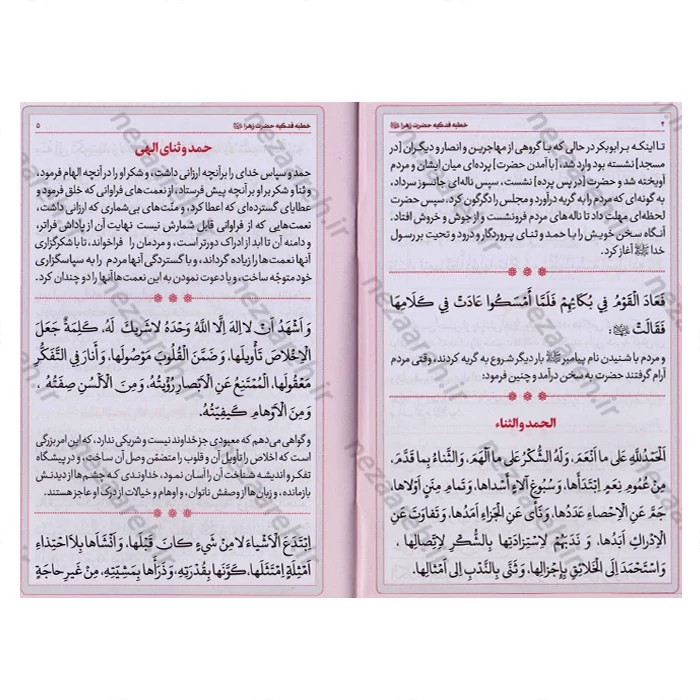 ۴ خطبه فدکیه حضرت زهرا ﷺ
تا اینکه بر ابوبکر در حالی که با گروهی از مهاجرین و انصار و دیگران [در
مسجد] نشسته بود وارد شد، [با آمدن حضرت] پرده‌ای میان ایشان و مردم
آویخته شد و حضرت [در پس پرده] نشست، سپس ناله‌ای جانسوز سرداد،
به گونه‌ای که مردم را به گریه درآورد و مجلس را دگرگون کرد. سپس چند
لحظه‌ای مهلت داد تا ناله‌های مردم فرونشست و از جوش و خروش افتاد.
آنگاه سخن خویش را با حمد و ثنای پروردگار و درود و تحیت بر رسول
خدا ﷺ آغاز کرد.
فَعَادَ الْقَوْمُ فِي بُكَائِهِمْ فَلَمَّا أَمْسَكُوا عَادَتْ فِي كَلَامِهَا
فَقَالَتْ :
و مردم با شنیدن نام پیامبر ﷺ بار دیگر شروع به گریه کردند، وقتی مردم
آرام گرفتند حضرت به سخن درآمد و چنین فرمود:
الحمد والثناء
اَلْحَمْدُلِلّٰهِ عَلى ما اَنْعَمَ، وَلَهُ الشُّكْرُ عَلى ما اَلْهَمَ، وَالثَّناءُ بِما قَدَّمَ،
مِنْ عُمُومِ نِعَمٍ اِبْتَدَأَها، وَ سُبُوغِ آلاءٍ اَسْداها، وَ تَمامِ مِنَنٍ اَوْلاها،
جَمَّ عَنِ الْاِحْصاءِ عَدَدُها، وَ نَأى عَنِ الْجَزاءِ اَمَدُها، وَ تَفاوَتَ عَنِ
الْاِدْراكِ اَبَدُها، وَ نَدَبَهُمْ لِاسْتِزادَتِها بِالشُّكْرِ لِاتِّصالِها،
وَ اسْتَحْمَدَ اِلَى الْخَلائِقِ بِاِجْزالِها، وَ ثَنّى بِالنَّدْبِ اِلى اَمْثالِها.
خطبه فدکیه حضرت زهرا ۵
حمد و ثنای الهی
حمد و سپاس خدای را بر آنچه ارزانی داشت، و شکر او را در آنچه الهام فرمود،
و ثنا و شکر بر او بر آنچه پیش فرستاد، از نعمت‌های فراوانی که خلق فرمود و
عطایای گسترده‌ای که اعطا کرد، و منّت‌های بی‌شماری که ارزانی داشت،
نعمت‌هایی که از فراوانی قابل شمارش نیست نهایت آن از پاداش فراتر،
و دامنه آن تا ابد از ادراک دورتر است، و مردمان را فراخواند، تا با شکرگزاری
آنها نعمت‌ها را زیاده گرداند، و با گستردگی آنها مردم را به سپاسگزاری
خود متوجّه ساخت، و با دعوت نمودن به این نعمت‌ها آنها را دو چندان کرد.
وَ اَشْهَدُ اَنْ لا اِلهَ اِلاَّ اللهُ وَحْدَهُ لا شَريكَ لَهُ، كَلِمَةٌ جَعَلَ
الْاِخْلاصَ تَأْويلَها، وَ ضَمَّنَ الْقُلُوبَ مَوْصُولَها، وَ اَنارَ فِي التَّفَكُّرِ
مَعْقُولَها، الْمُمْتَنِعُ عَنِ الْاَبْصارِ رُؤْيَتُهُ، وَ مِنَ الْاَلْسُنِ صِفَتُهُ،
وَ مِنَ الْاَوْهامِ كَيْفِيَّتُهُ.
و گواهی می‌دهم که معبودی جز خداوند نیست و شریکی ندارد، که این امر بزرگی
است که اخلاص را تأویل آن و قلوب را متضمّن وصل آن ساخت، و در پیشگاه
تفکر و اندیشه شناخت آن را آسان نمود، خداوندی که چشم‌ها از دیدنش
بازمانده، و زبان‌ها از وصفش ناتوان، و اوهام و خیالات از درک او عاجز هستند.
اِبْتَدَعَ الْاَشْياءَ لا مِنْ شَيْءٍ كانَ قَبْلَها، وَ اَنْشَأَها بِلاَ احْتِذاءِ
اَمْثِلَةٍ اِمْتَثَلَها، كَوَّنَها بِقُدْرَتِهِ، وَ ذَرَأَها بِمَشِيَّتِهِ، مِنْ غَيْرِ حاجَةٍ
nezaareh.ir
nezaareh.ir
nezaareh.ir
nezaareh.ir